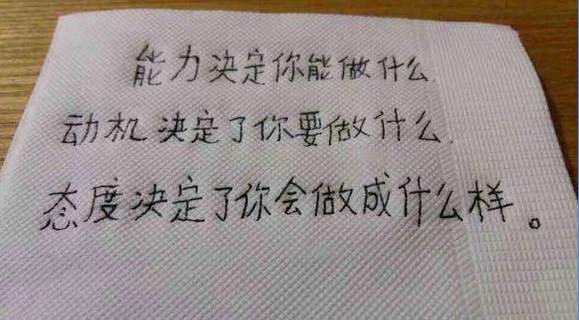 能力决定你能做什么.
动机决定了你要做什么.
态度决定了你会做成什么样。